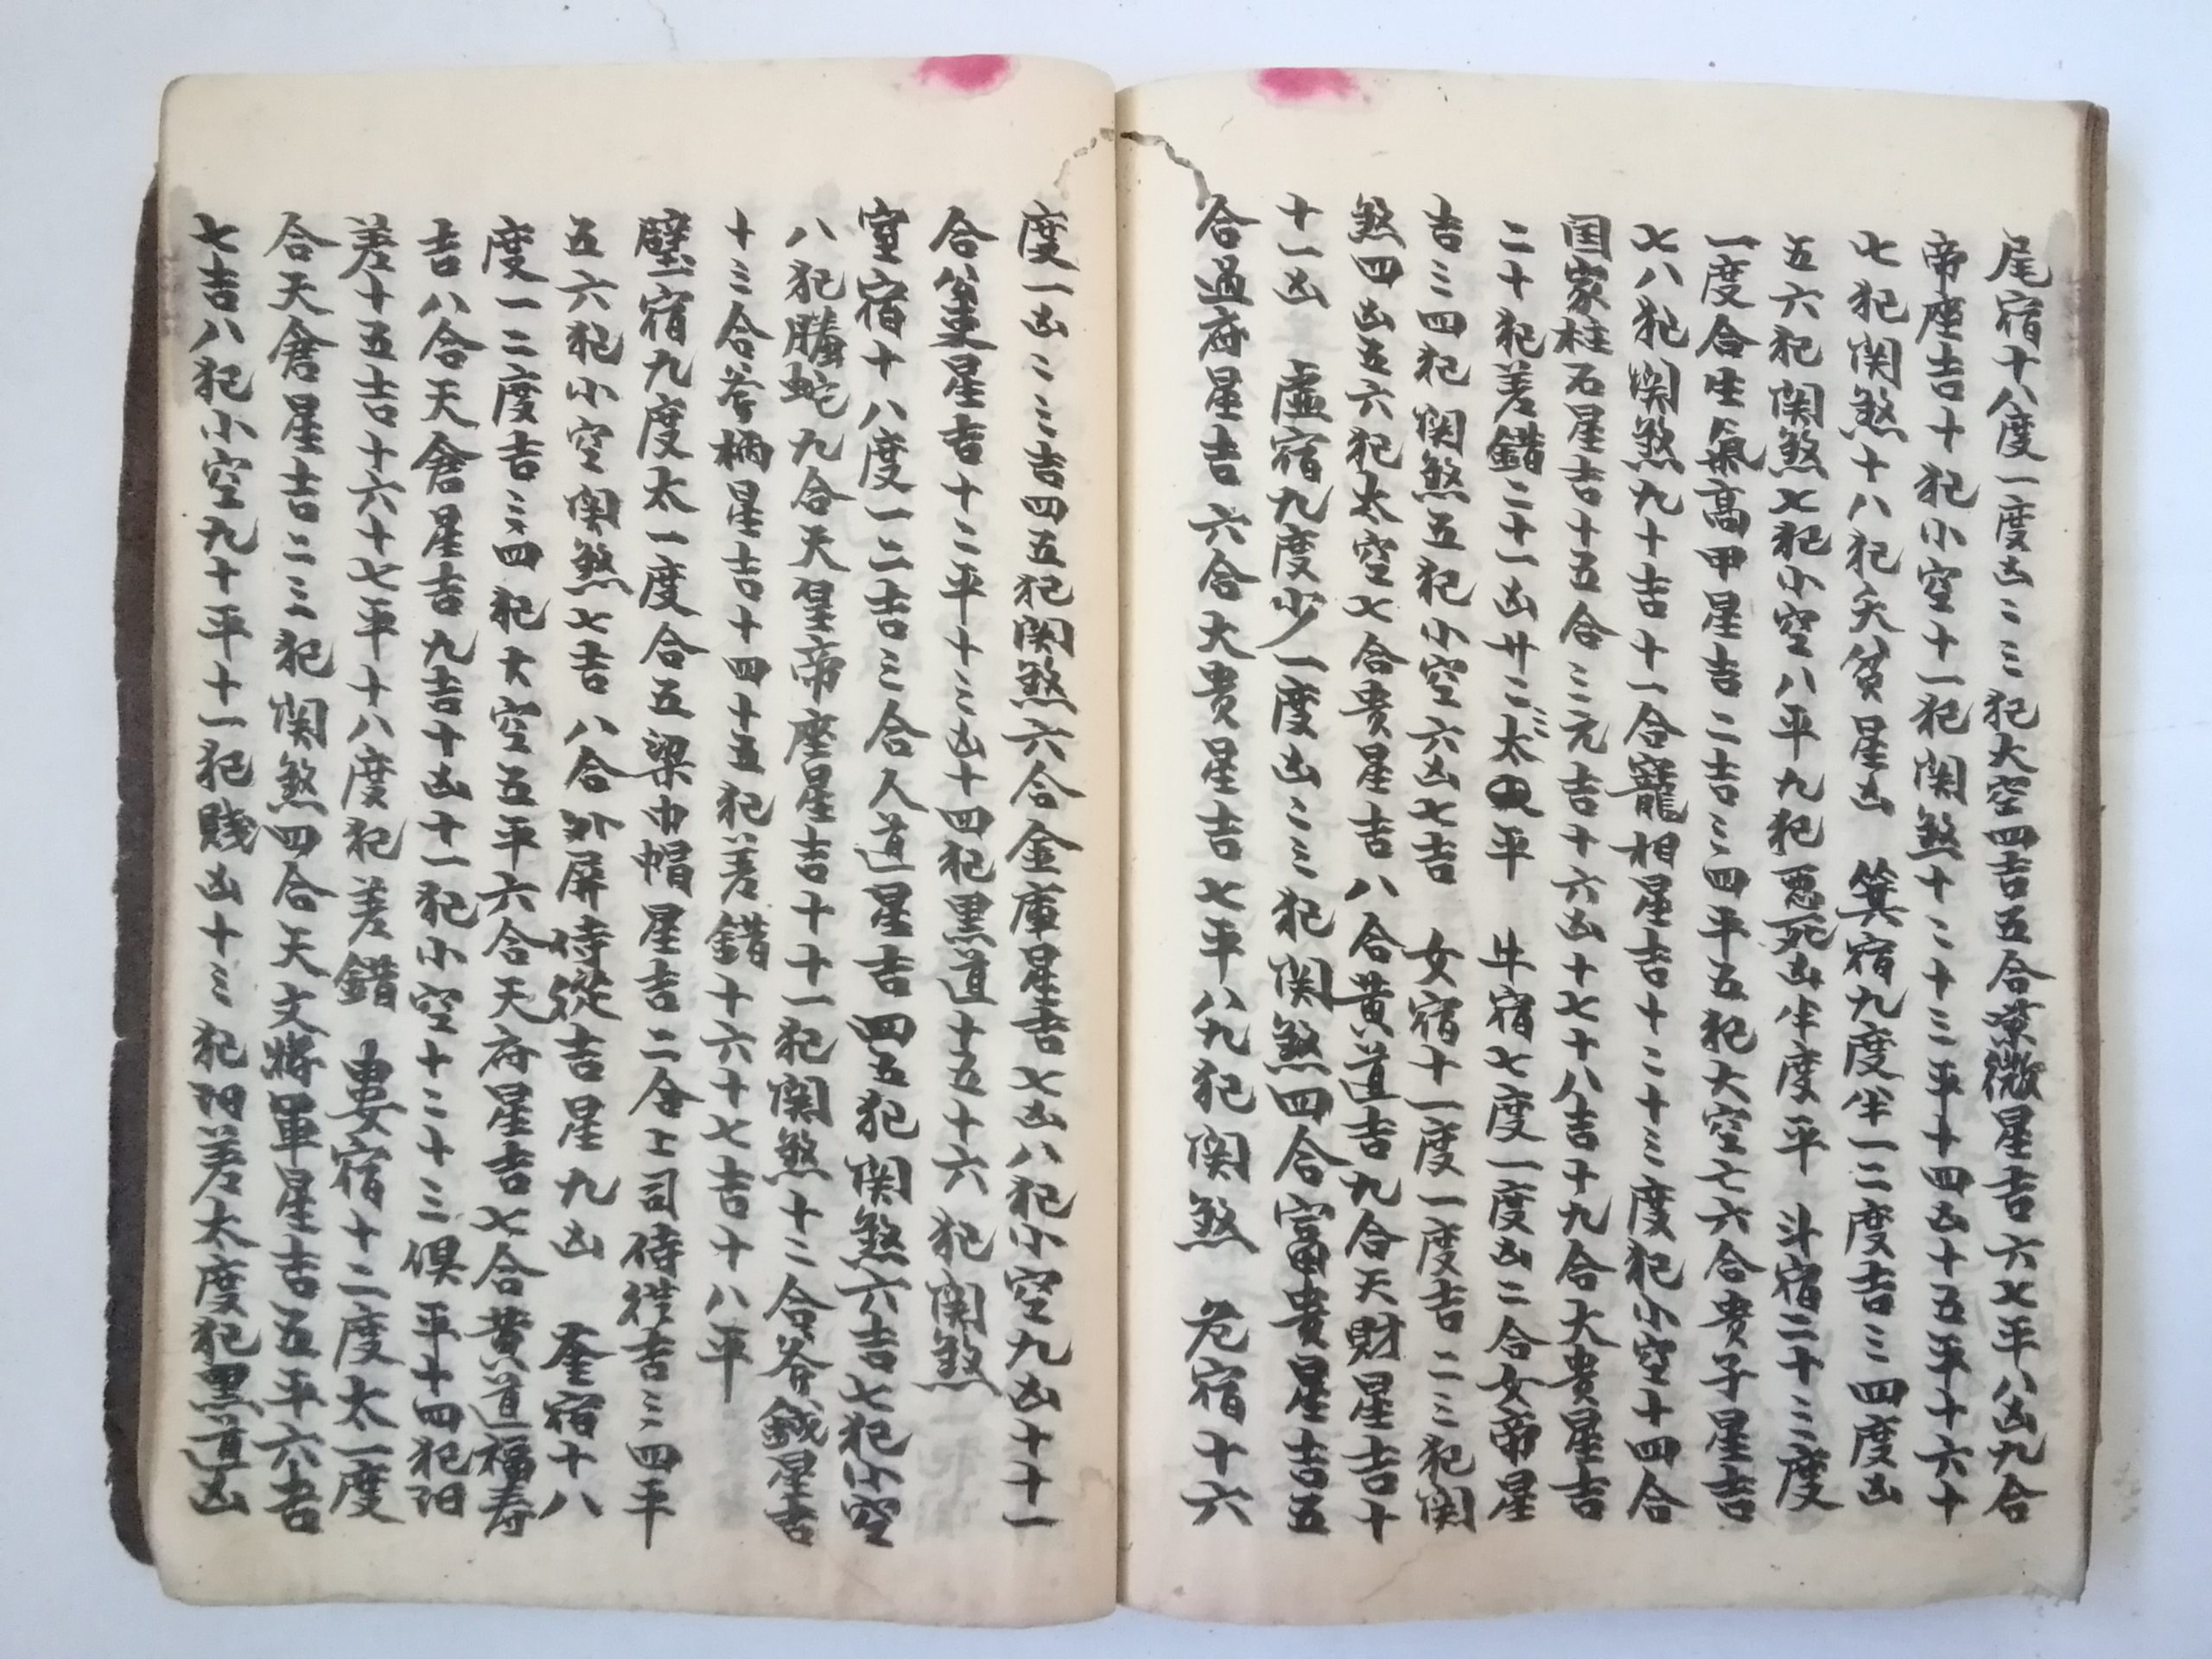 尾宿十八度一度凶二三犯大空四吉五合紫微星吉六七平八凶九合
帝座吉十犯小空十一犯関煞十二十三平十四凶十五平十六十
七犯関煞十八犯夭貧星凶　箕宿九度半一二度吉三四度凶
五六犯関煞七犯小空八平九犯悪死凶半度平　斗宿二十三度
一度合生氣高甲星吉二吉三四平五犯大空七六合贵子星吉
七八犯関煞九十吉十一合寵相星吉十二十三度犯小空十四合
国家柱石星吉十五合三元吉十六凶十七十八吉十九合大贵星吉
二十犯差錯二十一凶廿二太平　牛宿七度一度凶二合女帝星
吉三四犯関煞五犯小空六凶七吉　女宿十一度一度吉二三犯関
煞四凶五六犯太空七合贵星吉八合黄道吉九合天財星吉十
十一凶　虚宿九度少一度凶二三犯関煞四合富贵星吉五
合道府星吉六合大贵星吉七平八九犯関煞　危宿十六
度一凶二三吉四五犯関煞六合金庫星吉七凶八犯小空九凶十十一
合星吉十二平十三凶十四犯黒道十五十六犯関煞
室宿十八度一二吉三合人道星吉四五犯関煞六吉七犯小空
八犯螣蛇九合天皇帝座星吉十十一犯関煞十二合斧鉞星吉
十三合斧柄星吉十四十五犯差錯十六十七吉十八平
壁宿九度太一度合五梁巾帽星吉二合上司侍從吉三四平
五六犯小空関煞七吉八合外屏侍從吉星九凶　奎宿十八
度一二度吉三四犯大空五平六合天府星吉七合黄道福寿
吉八合天倉星吉九吉十凶十一犯小空十二十三俱平十四犯阳
差十五吉十六十七平十八度犯差錯　婁宿十二度太一度
合天倉星吉二三犯関煞四合天文將軍星吉五平六吉
七吉八犯小空九十平十一犯賤凶十三犯阳差太度犯黒道凶